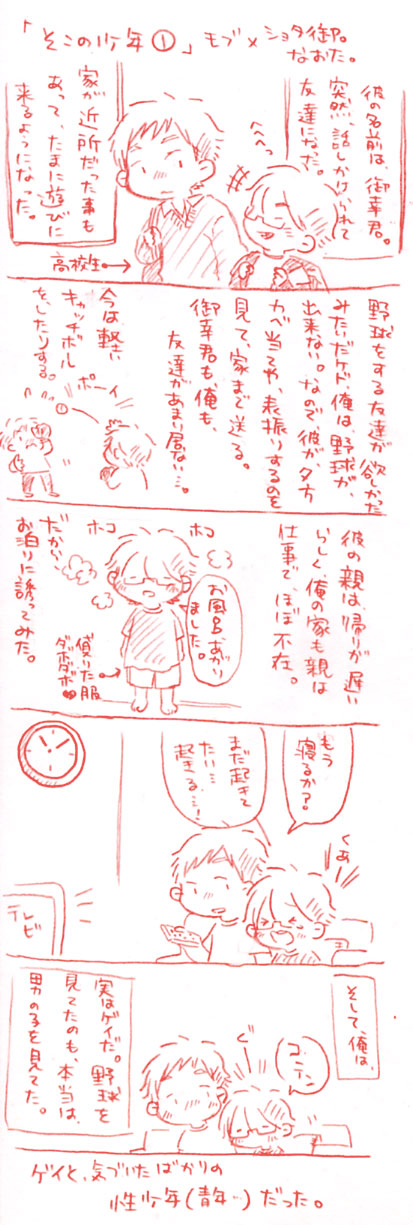 「そこの少年①」モブ×ショタ御。
なおた。
彼の名前は、御幸君。
突然、話しかけられて
友達になった。
へへっ
家が近所だった事も
あって、たまに遊びに
来るようになった。
高校生→
野球をする友達が欲しかった
みたいだケド、俺は、野球が、
出来ない。なので、彼が夕方
カベ当てや、素振りするのを
見て、家まで送る。
御幸君も、俺も、
友達があまり居ない…。
今は軽い
キャッチボール
をしたりする。
ポーイ
彼の親は、帰りが遅い
らしく、俺の家も親は
仕事で、ほぼ不在。
ホコ
ホコ
お風呂、あがり
ました。
借りた服
ダボダボ♥
だから、
お泊りに誘ってみた。
もう
寝るか?
まだ起きて
たい…
起きる…!
くあ
テレビ
そして、俺は、
コテン
実はゲイだ。野球を
見てたのも、本当は、
男の子を見てた。
ゲイと、気づいたばかりの
性少年(青年…)だった。